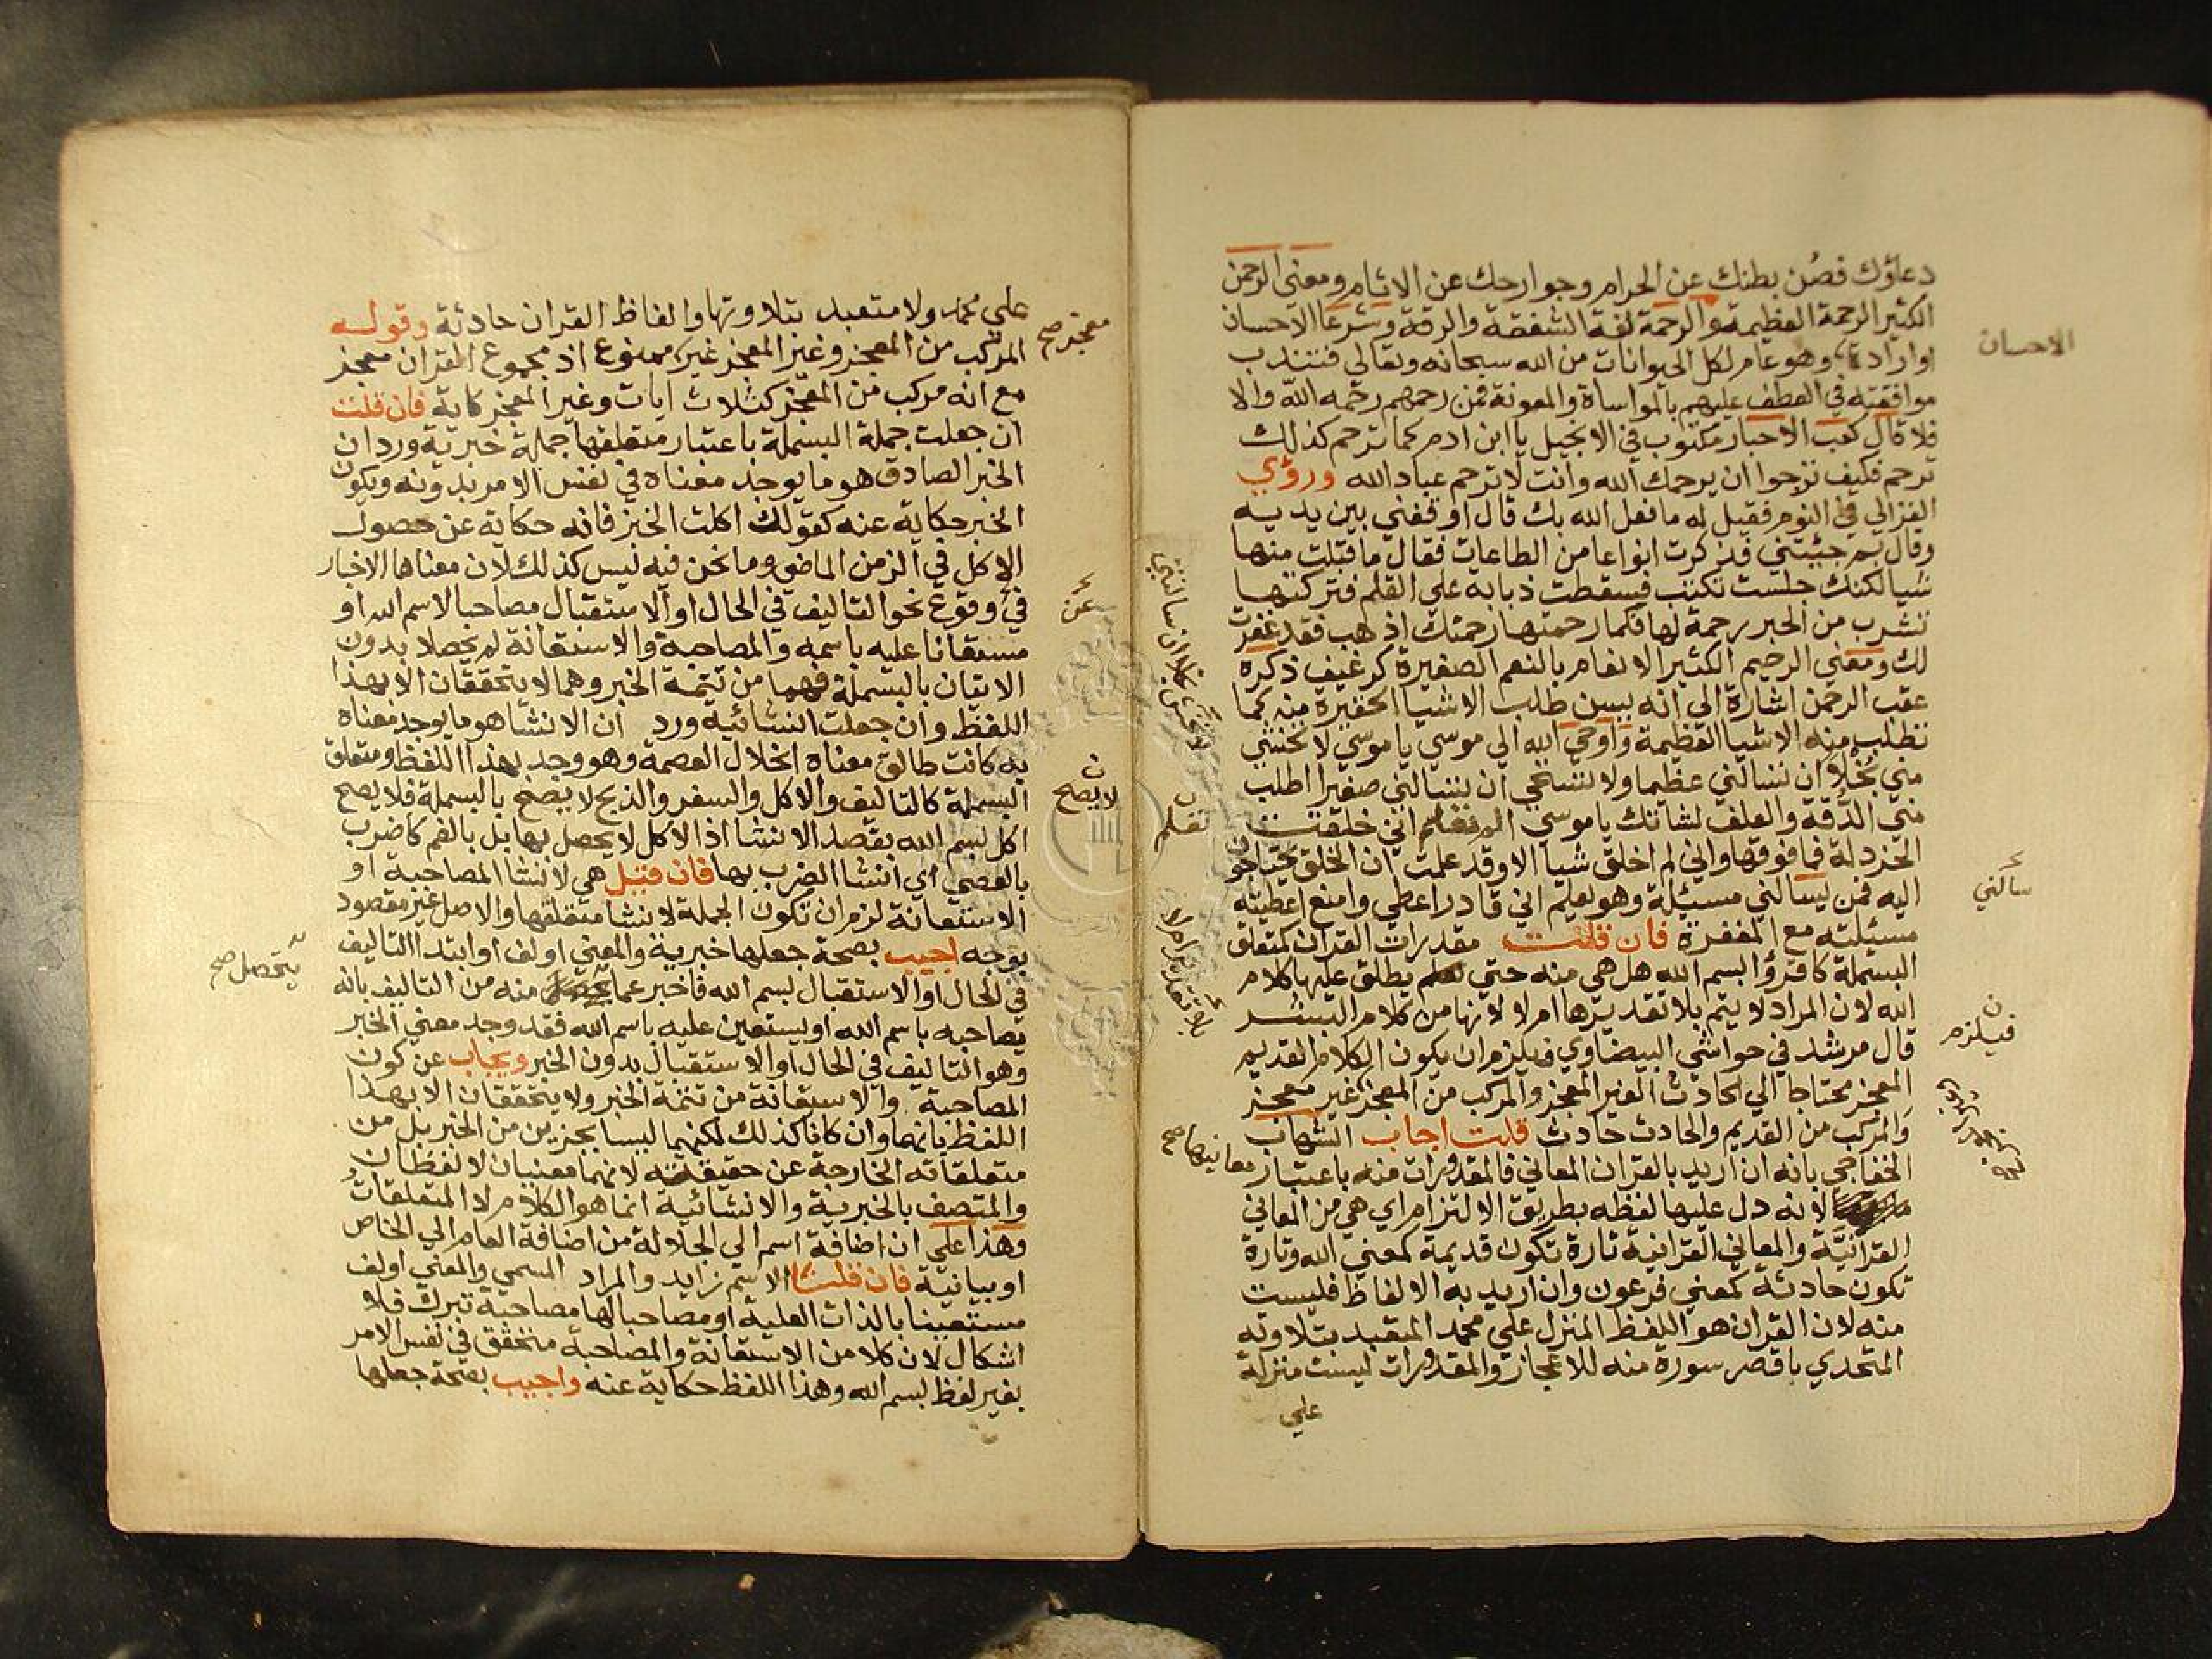 دعاؤك فصُن بطنك عن الحرام وجوارحك عن الاثام ومعني الرحمن
الكثير الرحمة العظيمة والرحمة لغة الشفقة والرقة وشرعا الاحسان
اوارادة وهو عام لكل الحيوانات من الله سبحانه وتعالي فتندب
موافقته في العطف عليهم بالمواساة والمعونة فمن رحمهم رحمه الله والا
فلا قال كعب الاحبار مكتوب في الانجيل يا ابن ادم كما ترحم كذلك
ترحم فكيف ترجوا ان يرحمك الله وانت لا ترحم عباد الله ورؤي
الغزالي في النوم فقيل له ما فعل الله بك قال اوقفني بين يديه
وقال بم جيتني فذكرت انواعا من الطاعات فقال ما قبلت منها
شيا لكنك جلست تكتب فسقطت ذبابة علي القلم فتركتها
تشرب من الحبر رحمة لها فكما رحمتها رحمتك اذهب فقد غفرت
لك ومعني الرحيم الكثير الانعام بالنعم الصغيرة كرغيف ذكره
عقب الرحمن اشارة الي انه يسن طلب الاشيا الحقيرة منه كما
تطلب منه الاشيا العظيمة واوحي الله الي موسي يا موسي لا تخشي
مني بُخلا ان تسالني عظيما ولا تستحي ان تسالني صغيرا اطلب
مني الدقة والعلف لشاتك يا موسي الم تعلم اني خلقت
الخردلة فما فوقها واني لم اخلق شيا الا وقد علمت ان الخلق يحتاجون
اليه فمن يسالني مسئلة وهو يعلم اني قادر اعطي وامنع اعطيته
مسئلته مع المغفرة فان قلت مقدرات القران كمتعلق
البسملة كاقرؤا بسم الله هل هي منه حتي يطلق عليها كلام
الله لان المراد لا يتم بلا تقديرها ام لا لانها من كلام البشر
قال مرشد في حواشي البيضاوي فيلزم ان يكون الكلام القديم
المعجز محتاجا الي الحادث الغير المعجز والمركب من المعجز غير معجز
والمركب من القديم والحادث حادث قلت اجاب الشهاب
الخفاجي بانه ان اريد بالقران المعاني فالمقدرات منه باعتبار معانيها صح
لانه دل عليها لفظه بطريق الالتزام اي هي من المعاني
القرانية والمعاني القرانية تارة تكون قديمة كمعني الله وتارة
تكون حادثة كمعني فرعون وان اريد به الالفاظ فليست
منه لان القران هو اللفظ المنزل علي محمد المتعبد بتلاوته
المتحدي باقصر سورة منه للاعجاز والمقدرات ليست منزلة
علي
الاحسان
سالني
فيلزم
تعلم
علي محمد ولا متعبد بتلاوتها والفاظ القران حادثة وقوله
المركب من المعجز وغير المعجز غير ممنوع اذ مجموع القران معجز
معجز صح
مع انه مركب من المعجز كثلاث ايات وغير المعجز كاية فان قلت
ان جعلت جملة البسملة باعتبار متعلقها جملة خبرية ورد ان
الخبر الصادق هو ما يوجد معناه في نفس الامر بدونه ويكون
الخبر حكاية عنه كقولك اكلت الخبز فانه حكاية عن حصول
الاكل في الزمن الماضي وما نحن فيه ليس كذلك لان معناها الاخبار
في وقوع نحو التاليف في الحال او الاستقبال مصاحبا لاسم الله او
عن
مستعانا عليه باسمه والمصاحبة والاستعانة لم يحصلا بدون
الاتيان بالبسملة فهما من تتمة الخبر وهما لا يتحققان الا بهذا
اللفظ وان جعلت انشائية ورد ان الانشا هو ما يوجد معناه
به كانت طالق معناه انحلال العصمة وهو وجد بهذا اللفظ ومتعلق
البسملة كالتاليف والاكل والسفر والذبح لا يصح بالبسملة فلا يصح
لا يصح
اكل بسم الله بقصد الانشا اذ الاكل لا يحصل بها بل بالفم كاضرب
بالعصي اي انشا الضرب بها فان قيل هي لانشا المصاحبة او
الاستعانة لزم ان تكون الجملة لانشا متعلقها والاصل غير مقصود
بوجه اجيب بصحة جعلها خبرية والمعني اولف او ابتدا التاليف
في الحال او الاستقبال بسم الله فاخبر عما منه من التاليف بانه
يتحصل صح
يصاحبه باسم الله او يستعين عليه باسم الله فقد وجد معني الخبر
وهو التاليف في الحال او الاستقبال بدون الخبر ويجاب عن كون
المصاحبة والاستعانة من تتمة الخبر ولا يتحققان الا بهذا
اللفظ بانهما وان كانا كذلك لكنهما ليسا بجزين من الخبر بل من
متعلقاته الخارجة عن حقيقته لانهما معنيان لا لفظان
والمتصف بالخبرية والانشائية انما هو الكلام لا المتعلقات
وهذا علي ان اضافة اسم الي الجلالة من اضافة العام الي الخاص
او بيانية فان قلت الاسم زايد والمراد المسمي والمعني اولف
مستعينا بالذات العلية او مصاحبا لها مصاحبة تبرك فلا
اشكال لان كلا من الاستعانة والمصاحبة متحقق في نفس الامر
بغير لفظ بسم الله وهذا اللفظ حكاية عنه واجيب بصحة جعلها